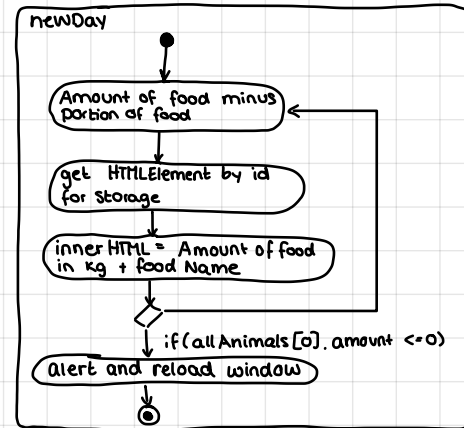 newDay
Amount of food minus
portion of food
get HTMLElement by id
for storage
innerHTML = Amount of food
in kg + food Name
if(allAnimals[0].amount <=0)
alert and reload window